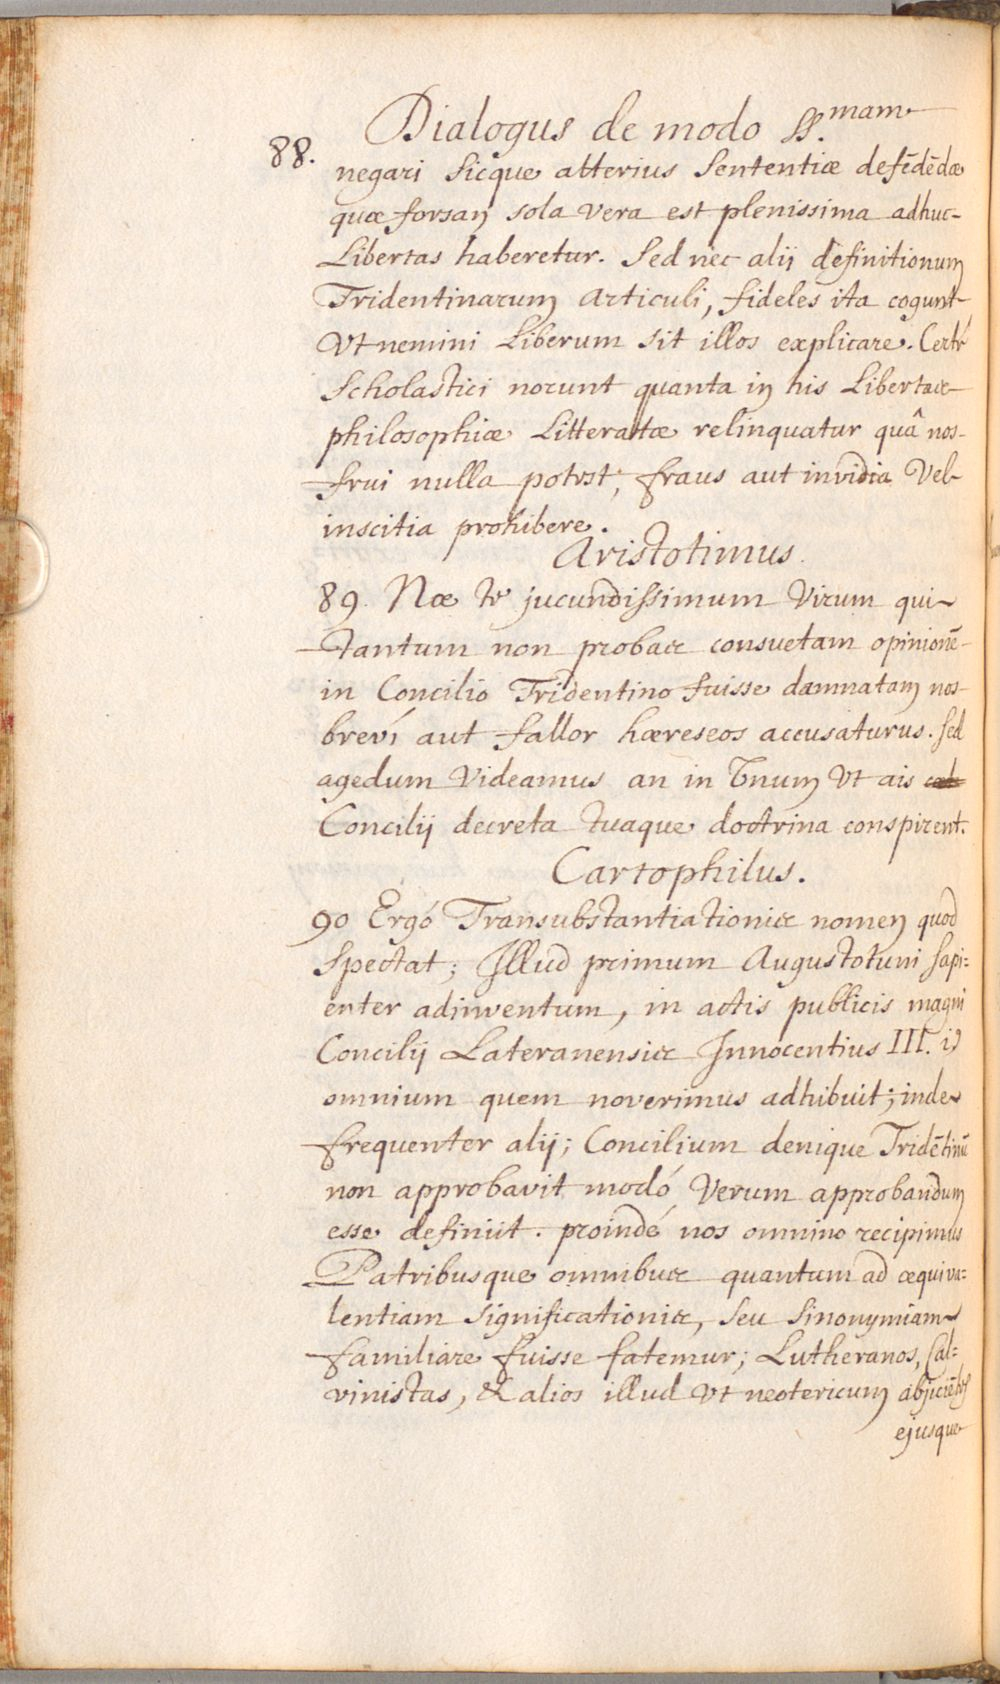 Dialogus de modo SS.mam
88.
negari sicque alterius sententiæ defēdēdæ
quæ forsan sola vera est plenissima adhuc
Libertas haberetur. Sed nec alij definitionum
Tridentinarum articuli, fideles ita cogunt
Vt nemini Liberum sit illos explicare. Certè
Scholastici norunt quanta in his Libertas
philosophiæ Litteratæ relinquatur quâ nos
frui nulla potest; fraus aut invidia Vel
inscitia prohibere.
Aristotimus.
89. Næ te jucundissimum Virum qui
tantum non probas consuetam opinionē
in Concilio Tridentino fuisse damnatam nos
brevi aut fallor hæreseos accusaturus. sed
agedum Videamus an in Vnum Vt ais
Concilij decreta tuaque doctrina conspirent.
Cartophilus.
90 Ergó Transubstantiationis nomen quod
Spectat; Illud primum Augustotuni sapi=
enter adinventum, in actis publicis magni
Concilij Lateranensis Innocentius III. id
omnium quem noverimus adhibuit; inde
frequenter alij; Concilium denique Tridētinū
non approbavit modó Verum approbandum
esse definiit. proindé nos omnino recipimus
Patribusque omnibus quantum ad æquiva=
lentiam significationis, seu Sinonymiam
familiare fuisse fatemur; Lutheranos, Cal=
vinistas, & alios illud Vt neotericum abjiciētes
ejusque